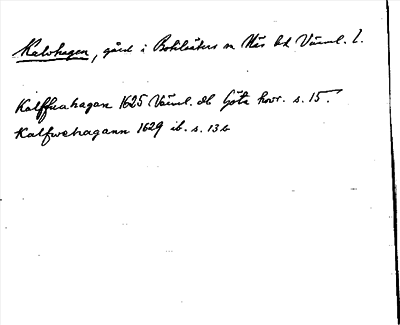 Kalvhagen, gård i Bohlsäters sn Näs hd Värml. l.
Kalffuahagan 1625 Värml. db Göta hovr. s. 15.
Kalfwehagann 1629 ib. s. 136